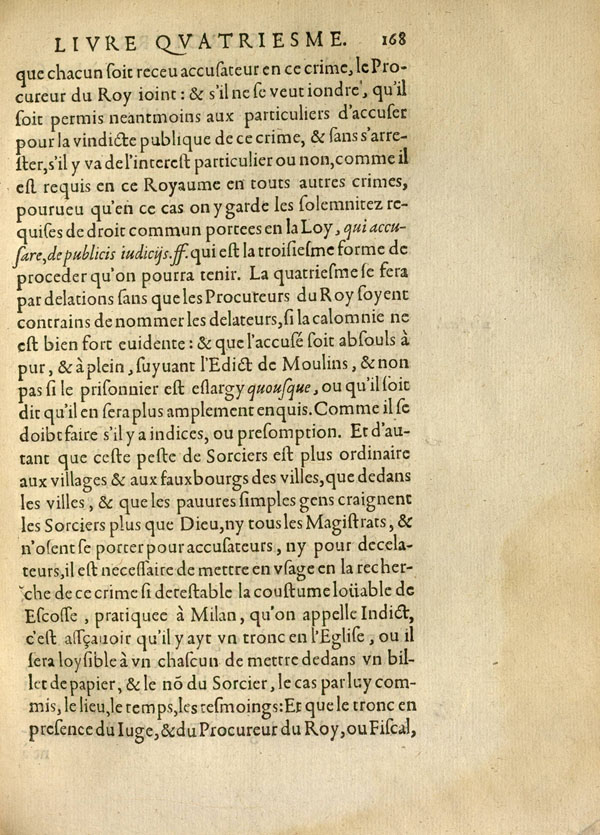 LIVRE QVATRIESME. 168
que chacun ſoit receu accuſateur en ce crime, le Pro-
cureur du Roy ioint: & s'il ne ſe veut iondre, qu'il
ſoit permis neantmoins aux particuliers d'accuſer
pour la vindicte publique de ce crime, & ſans s'arre-
ſter, s'il y va de l'intereſt particulier ou non, comme il
eſt requis en ce Royaume en touts autres crimes,
pourueu qu'en ce cas on y garde les ſolemnitez re-
quiſes de droit commun portees en la Loy, qui accu-
ſare, de publicis iudicijs. ff. qui eſt la troiſieſme forme de
proceder qu'on pourra tenir. La quatrieſme ſe fera
par delations ſans que les Procureurs du Roy ſoyent
contrains de nommer les delateurs, ſi la calomnie ne
eſt bien fort euidente: & que l'accuſé ſoit abſouls à
pur, & à plein, ſuyuant l'Edict de Moulins, & non
pas ſi le priſonnier eſt eſlargy quouſque, ou qu'il ſoit
dit qu'il en ſera plus amplement enquis. Comme il ſe
doibt faire s'il y a indices, ou preſomption. Et d'au-
tant que ceſte peſte de Sorciers eſt plus ordinaire
aux villages & aux fauxbourgs des villes, que dedans
les villes, & que les pauures ſimples gens craignent
les Sorciers plus que Dieu, ny tous les Magiſtrats, &
n'oſent ſe porter pour accuſateurs, ny pour decela-
teurs, il eſt neceſſaire de mettre en vſage en la recher-
che de ce crime ſi deteſtable la couſtume loüable de
Eſcoſſe, pratiquee à Milan, qu'on appelle Indict,
c'eſt aſſçauoir qu'il y ayt vn tronc en l'Egliſe, ou il
ſera loyſible à vn chaſcun de mettre dedans vn bil-
let de papier, & le nõ du Sorcier, le cas par luy com-
mis, le lieu, le temps, les teſmoings: Et que le tronc en
preſence du Iuge, & du Procureur du Roy, ou Fiſcal,